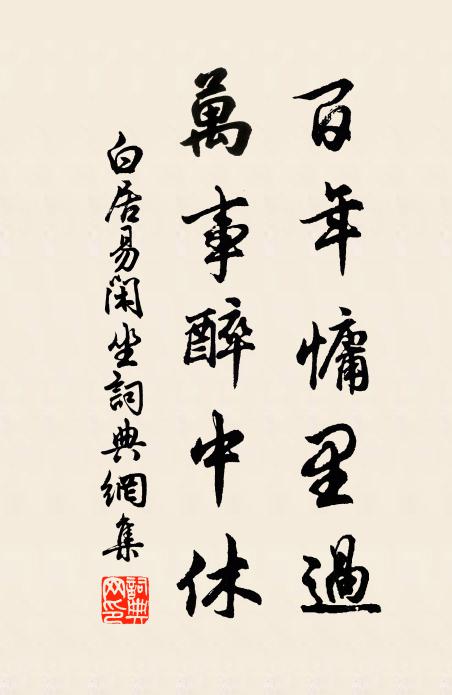 百年慵里過
萬事醉中休
白居易閑坐詞典網集
詞典網印